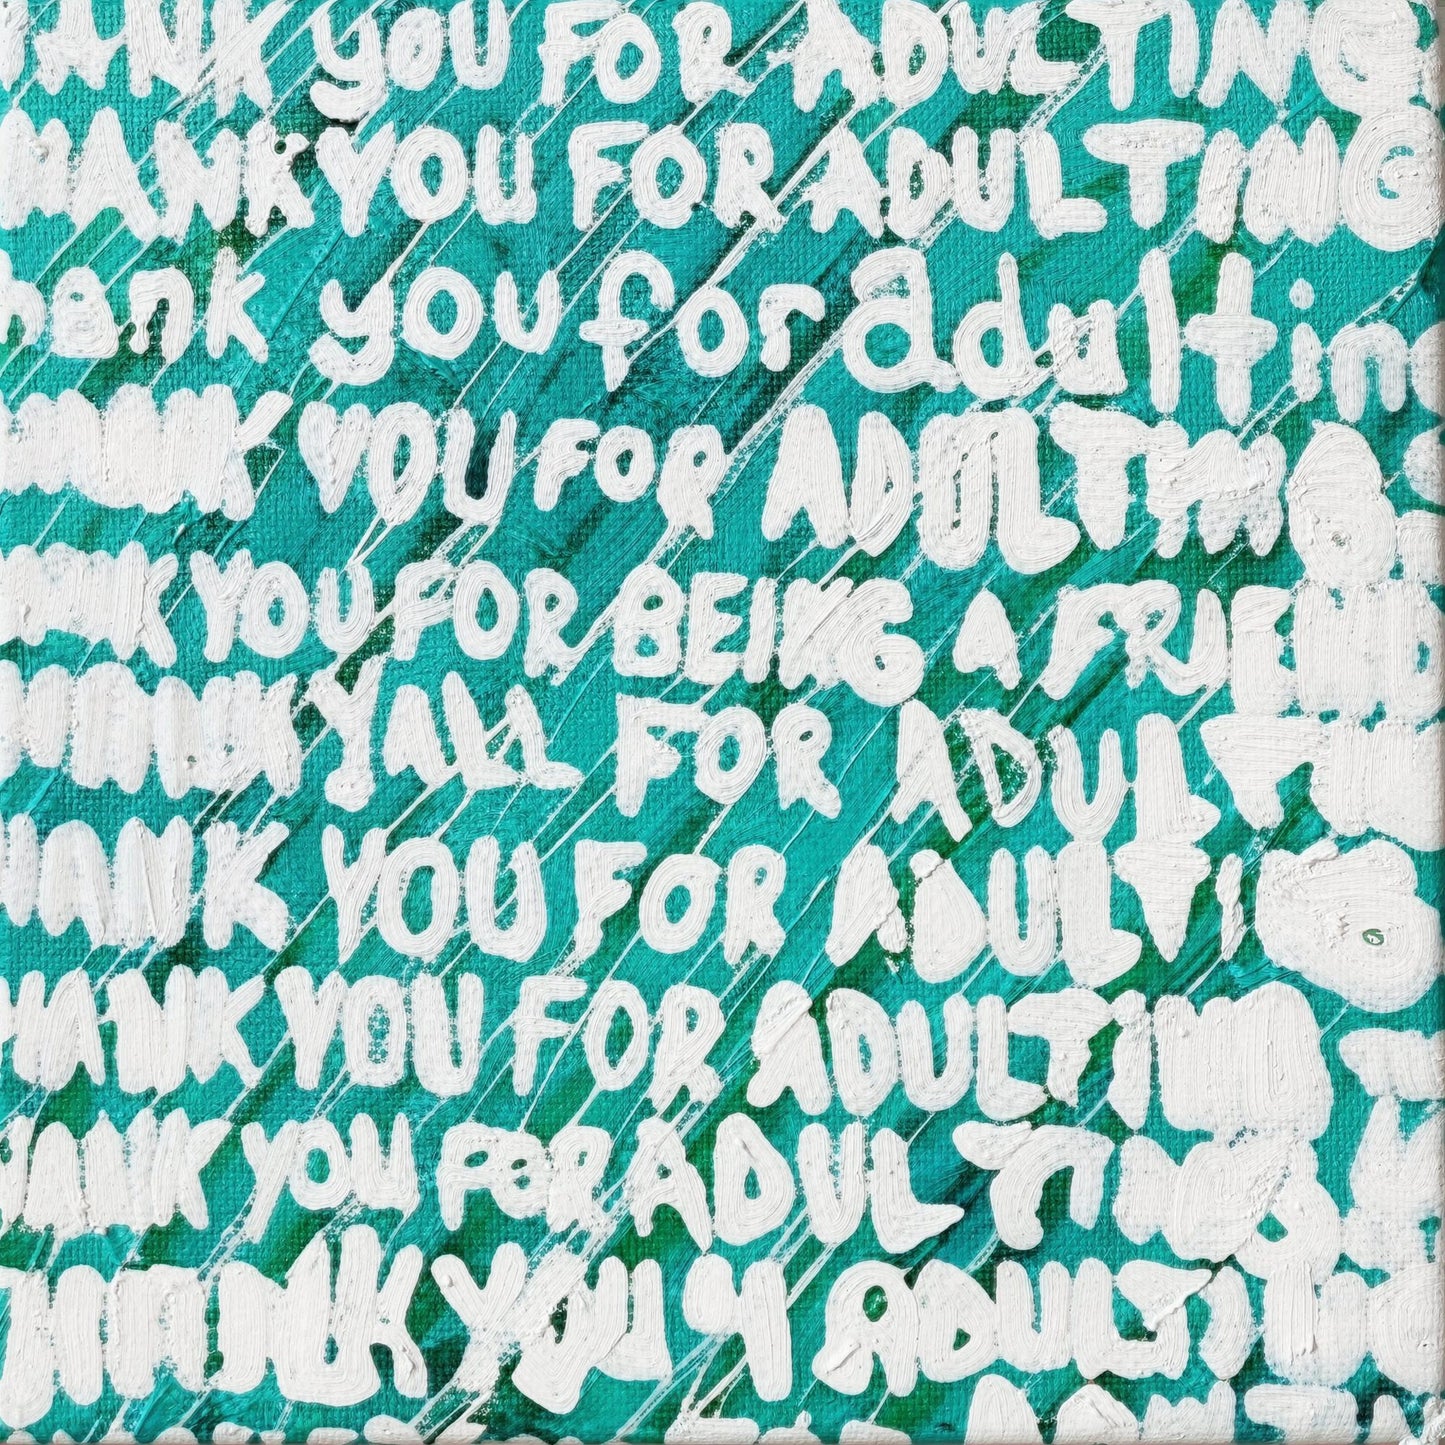 THANK YOU FOR ADULTING
THANK YOU FOR ADULTING
Thank you for adulting
THANK YOU FOR ADULTING
THANK YOU FOR BEING A FRIEND
THANK Y'ALL FOR ADULTING
THANK YOU FOR ADULTING
THANK YOU FOR ADULTING
THANK YOU FOR ADULTING
THANK YOU 4 ADULTING